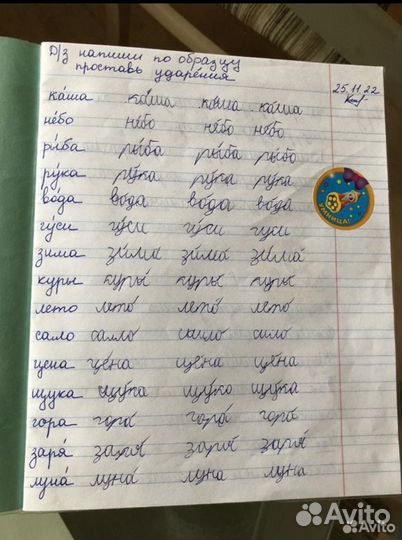 Д/з напиши по образцу
проставь ударе́ния
25.11.22
ка́ша ка́ша ка́ша ка́ша
не́бо не́бо не́бо не́бо
ры́ба ры́ба ры́ба ры́бо
ру́ка ру́ка ру́ка ру́ка
во́да во́да во́да во́да
гу́си гу́си гу́си гу́си
УМНИЦА!
зима зи́ма́ зи́ма́ зи́ма́
куры куры́ куры́ куры́
лето лето́ лето́ лето́
сало сало сало сало
цена це́на це́на це́на
щука щу́ка щу́ко щу́ка
гора гора́ гора́ гора́
заря́ заря́ заря́ заря́
луна́ луна́ луна́ луна́
Avito
Avito